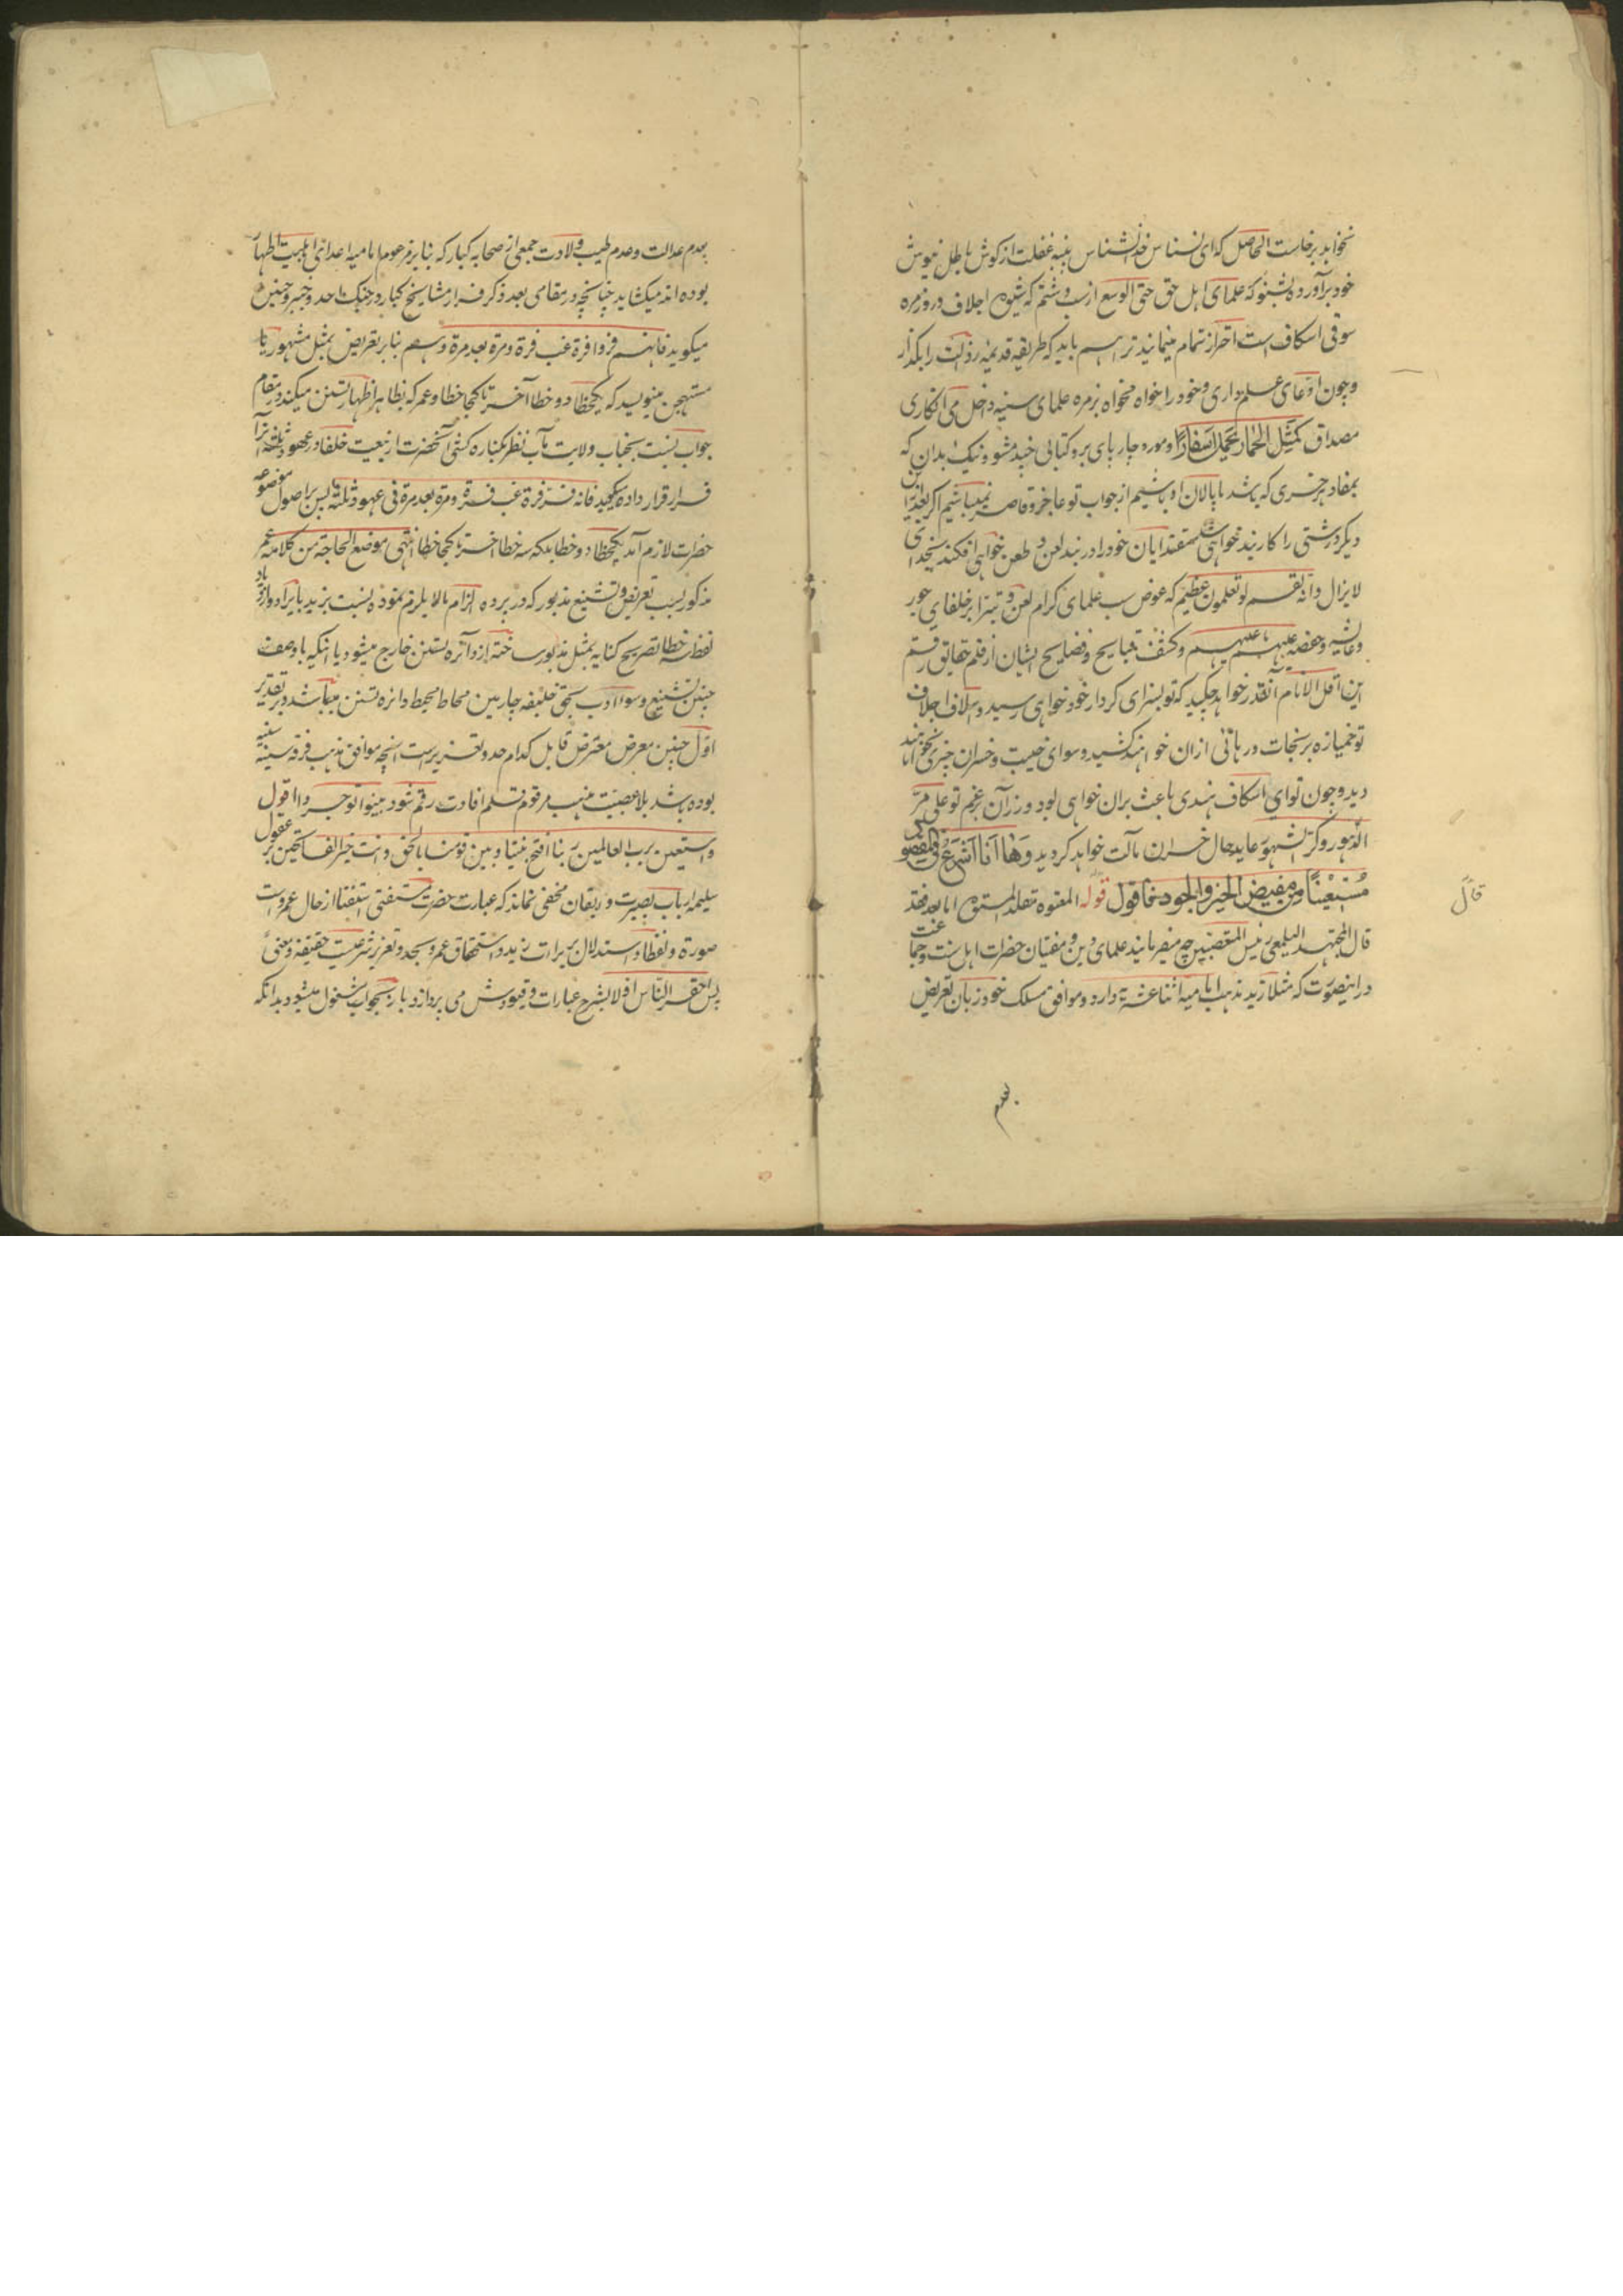 نخواهد برخاست الحاصل که ای نسناس خدانشناس پنبه غفلت از کوش باطل نیوش
خود برآورده بشنو که علمای اهل حق حتی الوسع از سب و شتم که شیوه اجلاف و روزمره
سوقی اسکاف است احتراز تمام مینمایند ترا هم باید که طریقه قدیمه رذالت را بگذار
و چون ادعای علم داری و خود را خواه مخواه بزمره علمای سنیه داخل می انکاری
مصداق کمثل الحمار یحمل اسفارا و مورد چارپای برو کتابی چند مشو و نیک بدان که
بمفاد هر خری که باشد ما پالان او باشیم از جواب تو عاجز و قاصر نمیباشیم اگر بعد ازین
دیگر درشتی را کار بند خواهی شد مقتدایان خود را در بند لعن و طعن خواهی افکند بخدای
لایزال وانه لقسم لو تعلمون عظیم که عوض سب علمای کرام لعن و تبرا بر خلفای جور
وعایشه و حفصه علیهم ما علیهم و کشف قبایح و فضایح ایشان از قلم حقایق رقم
این اقل الانام آنقدر خواهد چکید که تو بسزای کردار خود خواهی رسید و اسلاف اجلاف
تو خمیازه بر نجات و رهائی ازان خواهند کشید و سوای خیبت و خسران چیزی نخواهند
دید و چون تو ای اسکاف هندی باعث بران خواهی بود وزر آن برغم تو علی مر
الدهور و کر الشهور عاید حال خسران مآلت خواهد کردید وها انا اشرع فی المقصود
مستعینا من مفیض الخیر والجود فاقول قوله المفتوه مقلد المستوه اما بعد فقد
قال المجتهد البلعمی رئیس المتعصبین چه میفرمایند علمای دین و مفتیان حضرات اهل سنت و جماعت
درینصورت که مثلا زید مذهب امامیه اثنا عشریه دارد و موافق مسلک خود زبان تعریض
بعدم
قال
بعدم عدالت و عدم طیب ولادت جمعی از صحابه کبار که بنا بر مزعوم امامیه اعدای اهلبیت اطهار
بوده اند میکشاید چنانچه در مقامی بعد ذکر فرار مشایخ کبار در جنک احد و خیبر و حنین
میکوید فانهم فروا فرة غب فرة ومرة بعد مرة و هم بنا بر تعریض بمثل مشهور
مستهجن مینویسد که یکخطا دو خطا آخر تا کجا خطا و عمر که بظاهر اظهار تسنن میکند در مقام
جواب نسبت بجناب ولایت مآب نظر بکناره کشی آنحضرت از بیعت خلفا در عهود ثلثه آنرا
فرار قرار داده میکوید فانه فر فرة غب فرة ومرة بعد مرة فی عهود ثلثة پس بر اصول موضوعه
حضرات لازم آمد یکخطا دو خطا بلکه سه خطا آخر تا کجا خطا انتهی موضع الحاجة من کلامه عمر
مذکور بسبب تعریض و تشنیع مذبور که در پرده الزام ما لا یلزم نموده نسبت بزید بایراد و ازدیاد
لفظ سه خطا تصریح کنایه بمثل مذبور ساخته از دائره تسنن خارج میشود یا اینکه با وصف
چنین تشنیع و سوء ادب بحق خلیفه چارمین محاط محیط دائره تسنن میباشد و بر تقدیر
اول چنین معرض معترض قابل کدام حد و تعزیر است انچه موافق مذهب فرقه سنیه
بوده باشد بلا عصبیت مذهب مرقوم قلم افادت رقم شود بینوا توجروا اقول
واستعین برب العالمین ربنا افتح بیننا وبین قومنا بالحق وانت خیر الفاتحین بر عقول
سلیمه ارباب بصیرت و ایقان مخفی نماند که عبارت حضرت مستفتی استفتا از حال عمرو است
صورة ولفظا و استدلال بر برات زید و استحقاق عمرو بحد و تعزیر شرعیست حقیقة و معنی
پس احقر الناس اولا بشرح عبارات و قیودش می پردازد و باز بجواب مشغول میشود بدانکه